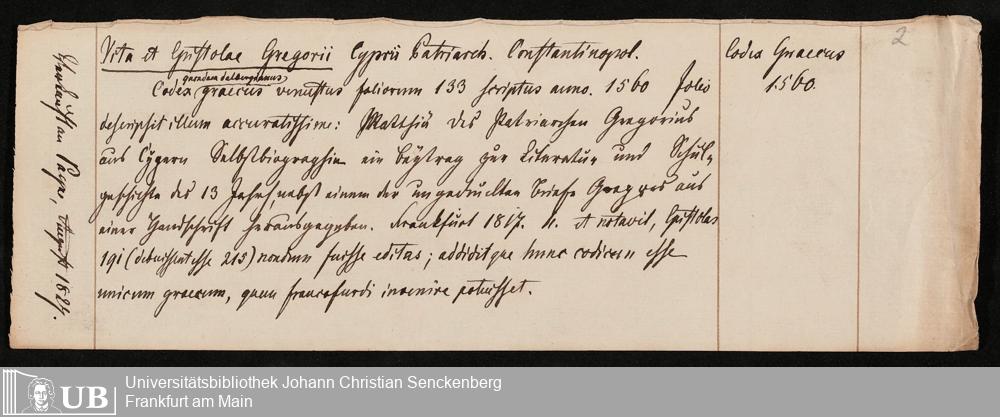 Vita et Epistolae Gregorii Cyprii Patriarch. Constantinopol.
quondam dalbergianus
Codex graecus venustus foliorum 133 scriptus anno. 1560 folio
descripsit illum accuratissime: Matthiä des Patriarchen Gregorius
aus Cypern Selbstbiographie ein Beytrag zur Literatur und Schul-
geschichte des 13 Jahrh, nebst einem der ungedruckten Briefe Gregors aus
einer Handschrift herausgegeben. Frankfurt 1817. 4. et notavit, Epistolas
191 (debuisset esse 215) nondum fuisse editas; addiditque hunc codicem esse
unicum graecum, quem francofurdi invenire potuisset.
Codex Graecus
1560.
2
Verkauft an Payne, August 1824.
Universitätsbibliothek Johann Christian Senckenberg
Frankfurt am Main
UB